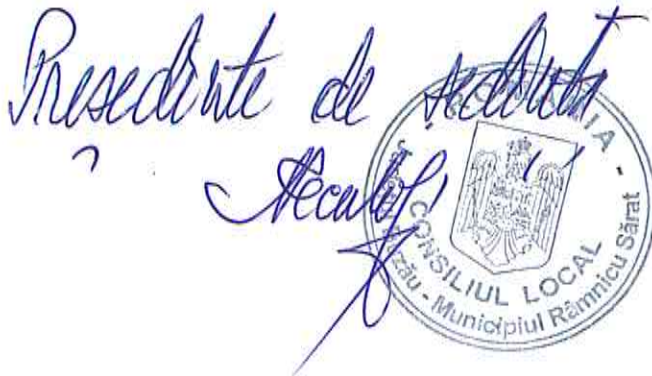 Președinte de ședință
ROMÂNIA -
CONSILIUL LOCAL
Buzău - Municipiul Râmnicu Sărat